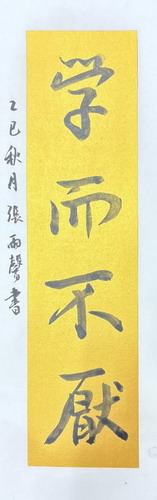 学而不厭
乙巳秋月張雨馨書